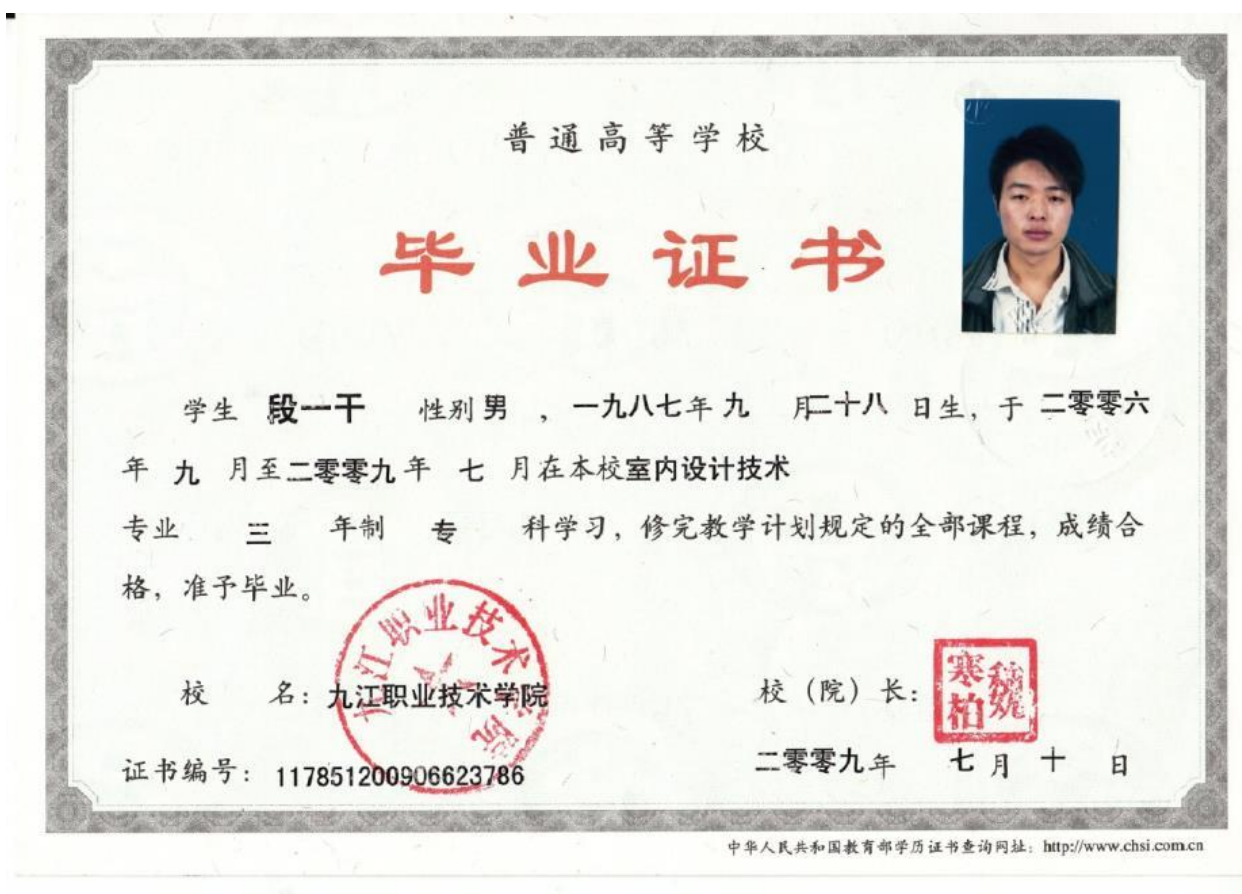 普通高等学校
毕业证书
学生 段一干 性别 男 ，一九八七年 九 月二十八 日生，于 二零零六
年 九 月至二零零九年 七 月在本校室内设计技术
专业 三 年制 专 科学习，修完教学计划规定的全部课程，成绩合
格，准予毕业。
九江职业技术学院
校 名：九江职业技术学院 校（院）长：
证书编号：117851200906623786 二零零九年 七月 十 日
中华人民共和国教育部学历证书查询网址：http://www.chsi.com.cn